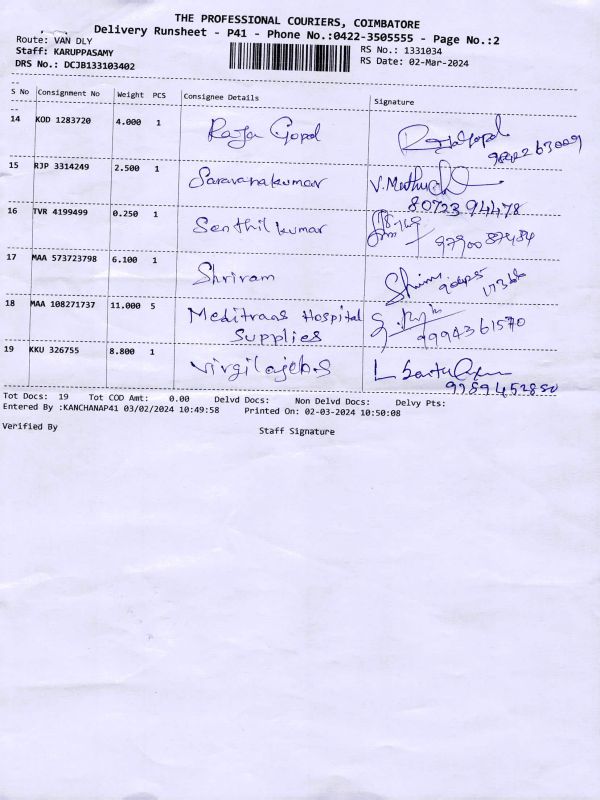 THE PROFESSIONAL COURIERS, COIMBATORE
Delivery Runsheet - P41 - Phone No.:0422-3505555 - Page No.:2
Route: VAN DLY RS No.: 1331034
Staff: KARUPPASAMY RS Date: 02-Mar-2024
DRS No.: DCJB133103402
S No Consignment No Weight PCS Consignee Details Signature
14 KOD 1283720 4.000 1 Raja Gopal RajaGopal
15 RJP 3314249 2.500 1 Saravanakumar V.
80723 94478
16 TVR 4199499 0.250 1 Senthil kumar
17 MAA 573723798 6.100 1 Shriram
18 MAA 108271737 11.000 5 Meditraas Hospital
Supplies 9994361570
19 KKU 326755 8.800 1 L
Tot Docs: 19 Tot COD Amt: 0.00 Delvd Docs: Non Delvd Docs: Delvy Pts:
Entered By :KANCHANAP41 03/02/2024 10:49:58 Printed On: 02-03-2024 10:50:08
Verified By Staff Signature